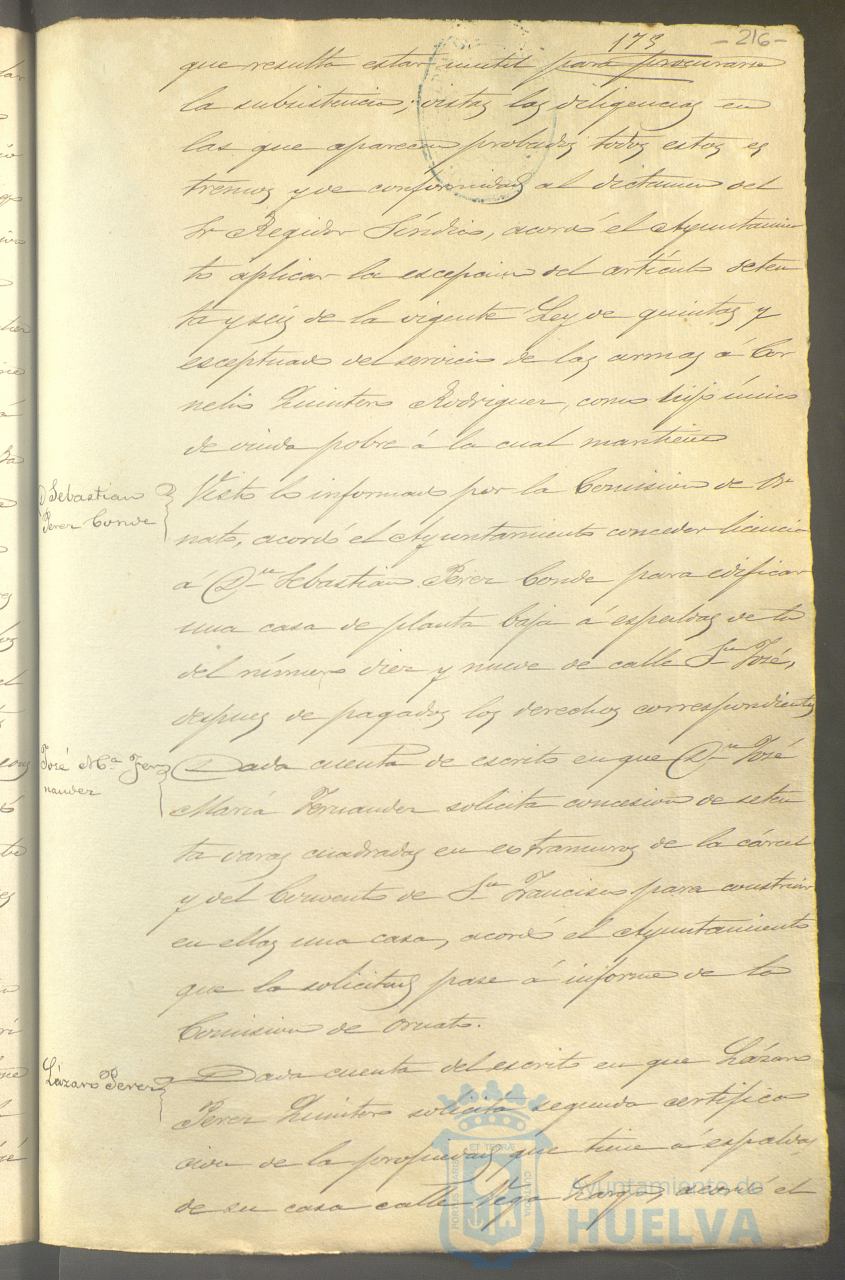 173
-216-
que resulta estar inutil para procurarse
la subsistencia; vistas las diligencias en
las que aparecen probados todos estos es
tremos y de conformidad al dictamen del
Sr Regidor Síndico, acordó el Ayuntamien
to aplicar la escepcion del artículo seten
ta y seis de la vigente Ley de quintas y
esceptuado del servicio de las armas á Cor
nelio Quintero Rodriguez, como hijo único
de viuda pobre á la cual mantiene
D Sebastian
Perez Conde
Visto lo informado por la Comision de Or
nato, acordó el Ayuntamiento conceder licencia
á Dn Sebastian Perez Conde para edificar
una casa de planta baja á espaldas de la
del número diez y nueve de calle Sn José,
despues de pagados los derechos correspondientes
José Ma Fer
nandez
Dada cuenta de escrito en que Dn José
María Fernandez solicita concesion de seten
ta varas cuadradas en estramuros de la cárcel
y del Convento de Sn Francisco para construir
en ellas una casa, acordó el Ayuntamiento
que la solicitud pase á informe de la
Comision de Ornato.
Lázaro Perez
Dada cuenta del escrito en que Lázaro
Perez Quintero solicita segunda certifica
cion de la propiedad que tiene á espaldas
de su casa calle Vega Larga, acordó el
Ayuntamiento de
HUELVA